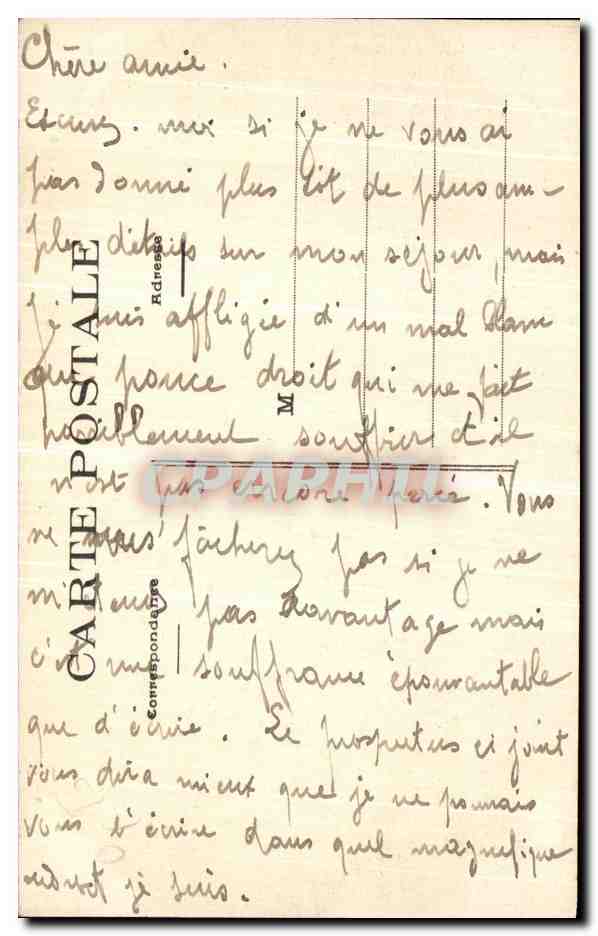 Chère amie.
Excusez-moi si je ne vous ai
pas donné plus tôt de plus am-
ples détails sur mon séjour, mais
je suis affligée d'un mal blanc
au pouce droit qui me fait
passablement souffrir et il
n'est pas encore percé. Vous
ne vous fâcherez pas si je ne
m'étends pas davantage mais
c'est une souffrance épouvantable
que d'écrire. Le prospectus ci joint
vous dira mieux que je ne pourrais
vous l'écrire dans quel magnifique
endroit je suis.
CARTE POSTALE
Correspondance
Adresse
M
CPARHILL